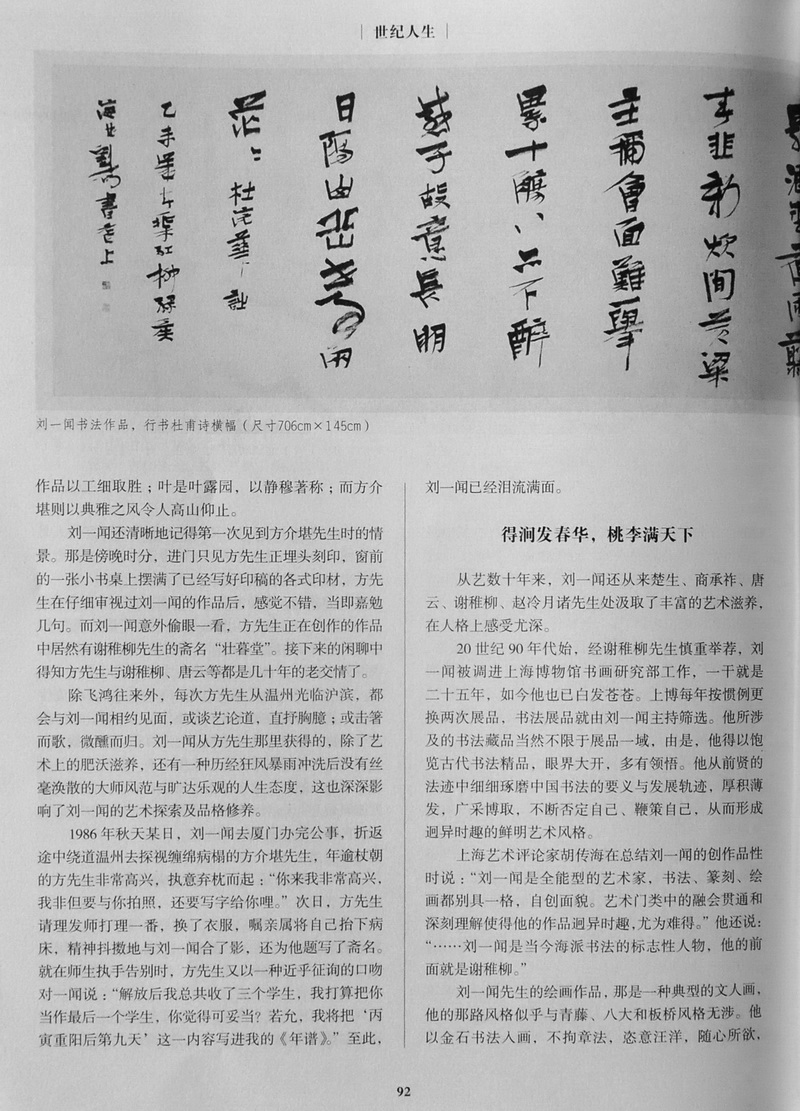 世纪人生
夜雨翦
春韭新炊间黄粱
主称会面难一举
累十觞十觞亦不醉
感子故意长明
日隔山岳世事两
茫茫 杜
海上刘一闻书
刘一闻书法作品，行书杜甫诗横幅（尺寸706cm×145cm）
作品以工细取胜；叶是叶露园，以静穆著称；而方介
堪则以典雅之风令人高山仰止。
刘一闻还清晰地记得第一次见到方介堪先生时的情
景。那是傍晚时分，进门只见方先生正埋头刻印，窗前
的一张小书桌上摆满了已经写好印稿的各式印材，方先
生在仔细审视过刘一闻的作品后，感觉不错，当即嘉勉
几句。而刘一闻意外偷眼一看，方先生正在创作的作品
中居然有谢稚柳先生的斋名“壮暮堂”。接下来的闲聊中
得知方先生与谢稚柳、唐云等都是几十年的老交情了。
除飞鸿往来外，每次方先生从温州光临沪滨，都
会与刘一闻相约见面，或谈艺论道，直抒胸臆；或击箸
而歌，微醺而归。刘一闻从方先生那里获得的，除了艺
术上的肥沃滋养，还有一种历经狂风暴雨冲洗后没有丝
毫涣散的大师风范与旷达乐观的人生态度，这也深深影
响了刘一闻的艺术探索及品格修养。
1986年秋天某日，刘一闻去厦门办完公事，折返
途中绕道温州去探视缠绵病榻的方介堪先生，年逾杖朝
的方先生非常高兴，执意弃枕而起：“你来我非常高兴，
我非但要与你拍照，还要写字给你哩。”次日，方先生
请理发师打理一番，换了衣服，嘱亲属将自己抬下病
床，精神抖擞地与刘一闻合了影，还为他题写了斋名。
就在师生执手告别时，方先生又以一种近乎征询的口吻
对一闻说：“解放后我总共收了三个学生，我打算把你
当作最后一个学生，你觉得可妥当？若允，我将把‘丙
寅重阳后第九天’这一内容写进我的《年谱》。”至此，
刘一闻已经泪流满面。
得涧发春华，桃李满天下
从艺数十年来，刘一闻还从来楚生、商承祚、唐
云、谢稚柳、赵冷月诸先生处汲取了丰富的艺术滋养，
在人格上感受尤深。
20世纪90年代始，经谢稚柳先生慎重举荐，刘
一闻被调进上海博物馆书画研究部工作，一干就是
二十五年，如今他也已白发苍苍。上博每年按惯例更
换两次展品，书法展品就由刘一闻主持筛选。他所涉
及的书法藏品当然不限于展品一域，由是，他得以饱
览古代书法精品，眼界大开，多有领悟。他从前贤的
法迹中细细琢磨中国书法的要义与发展轨迹，厚积薄
发，广采博取，不断否定自己、鞭策自己，从而形成
迥异时趣的鲜明艺术风格。
上海艺术评论家胡传海在总结刘一闻的创作品性
时说：“刘一闻是全能型的艺术家，书法、篆刻、绘
画都别具一格，自创面貌。艺术门类中的融会贯通和
深刻理解使得他的作品迥异时趣，尤为难得。”他还说：
“……刘一闻是当今海派书法的标志性人物，他的前
面就是谢稚柳。”
刘一闻先生的绘画作品，那是一种典型的文人画，
他的那路风格似乎与青藤、八大和板桥风格无涉。他
以金石书法入画，不拘章法，恣意汪洋，随心所欲，
92